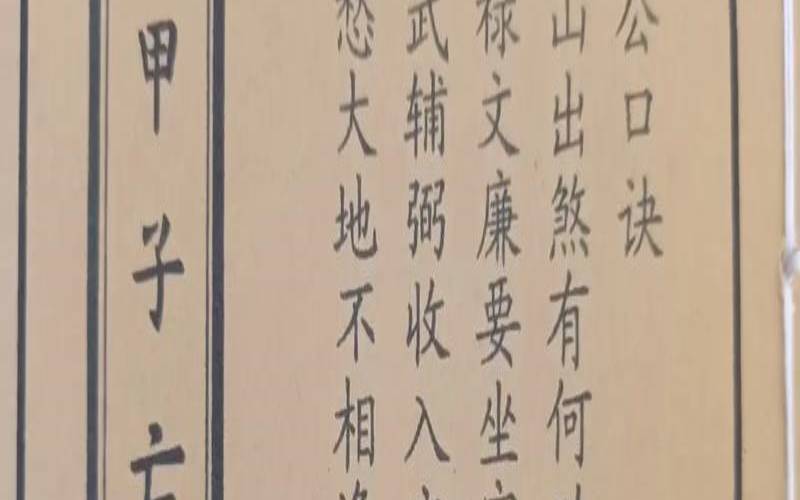 公口诀
山出煞有何
禄文廉要坐
武辅弼收入
愁大地不相
甲子